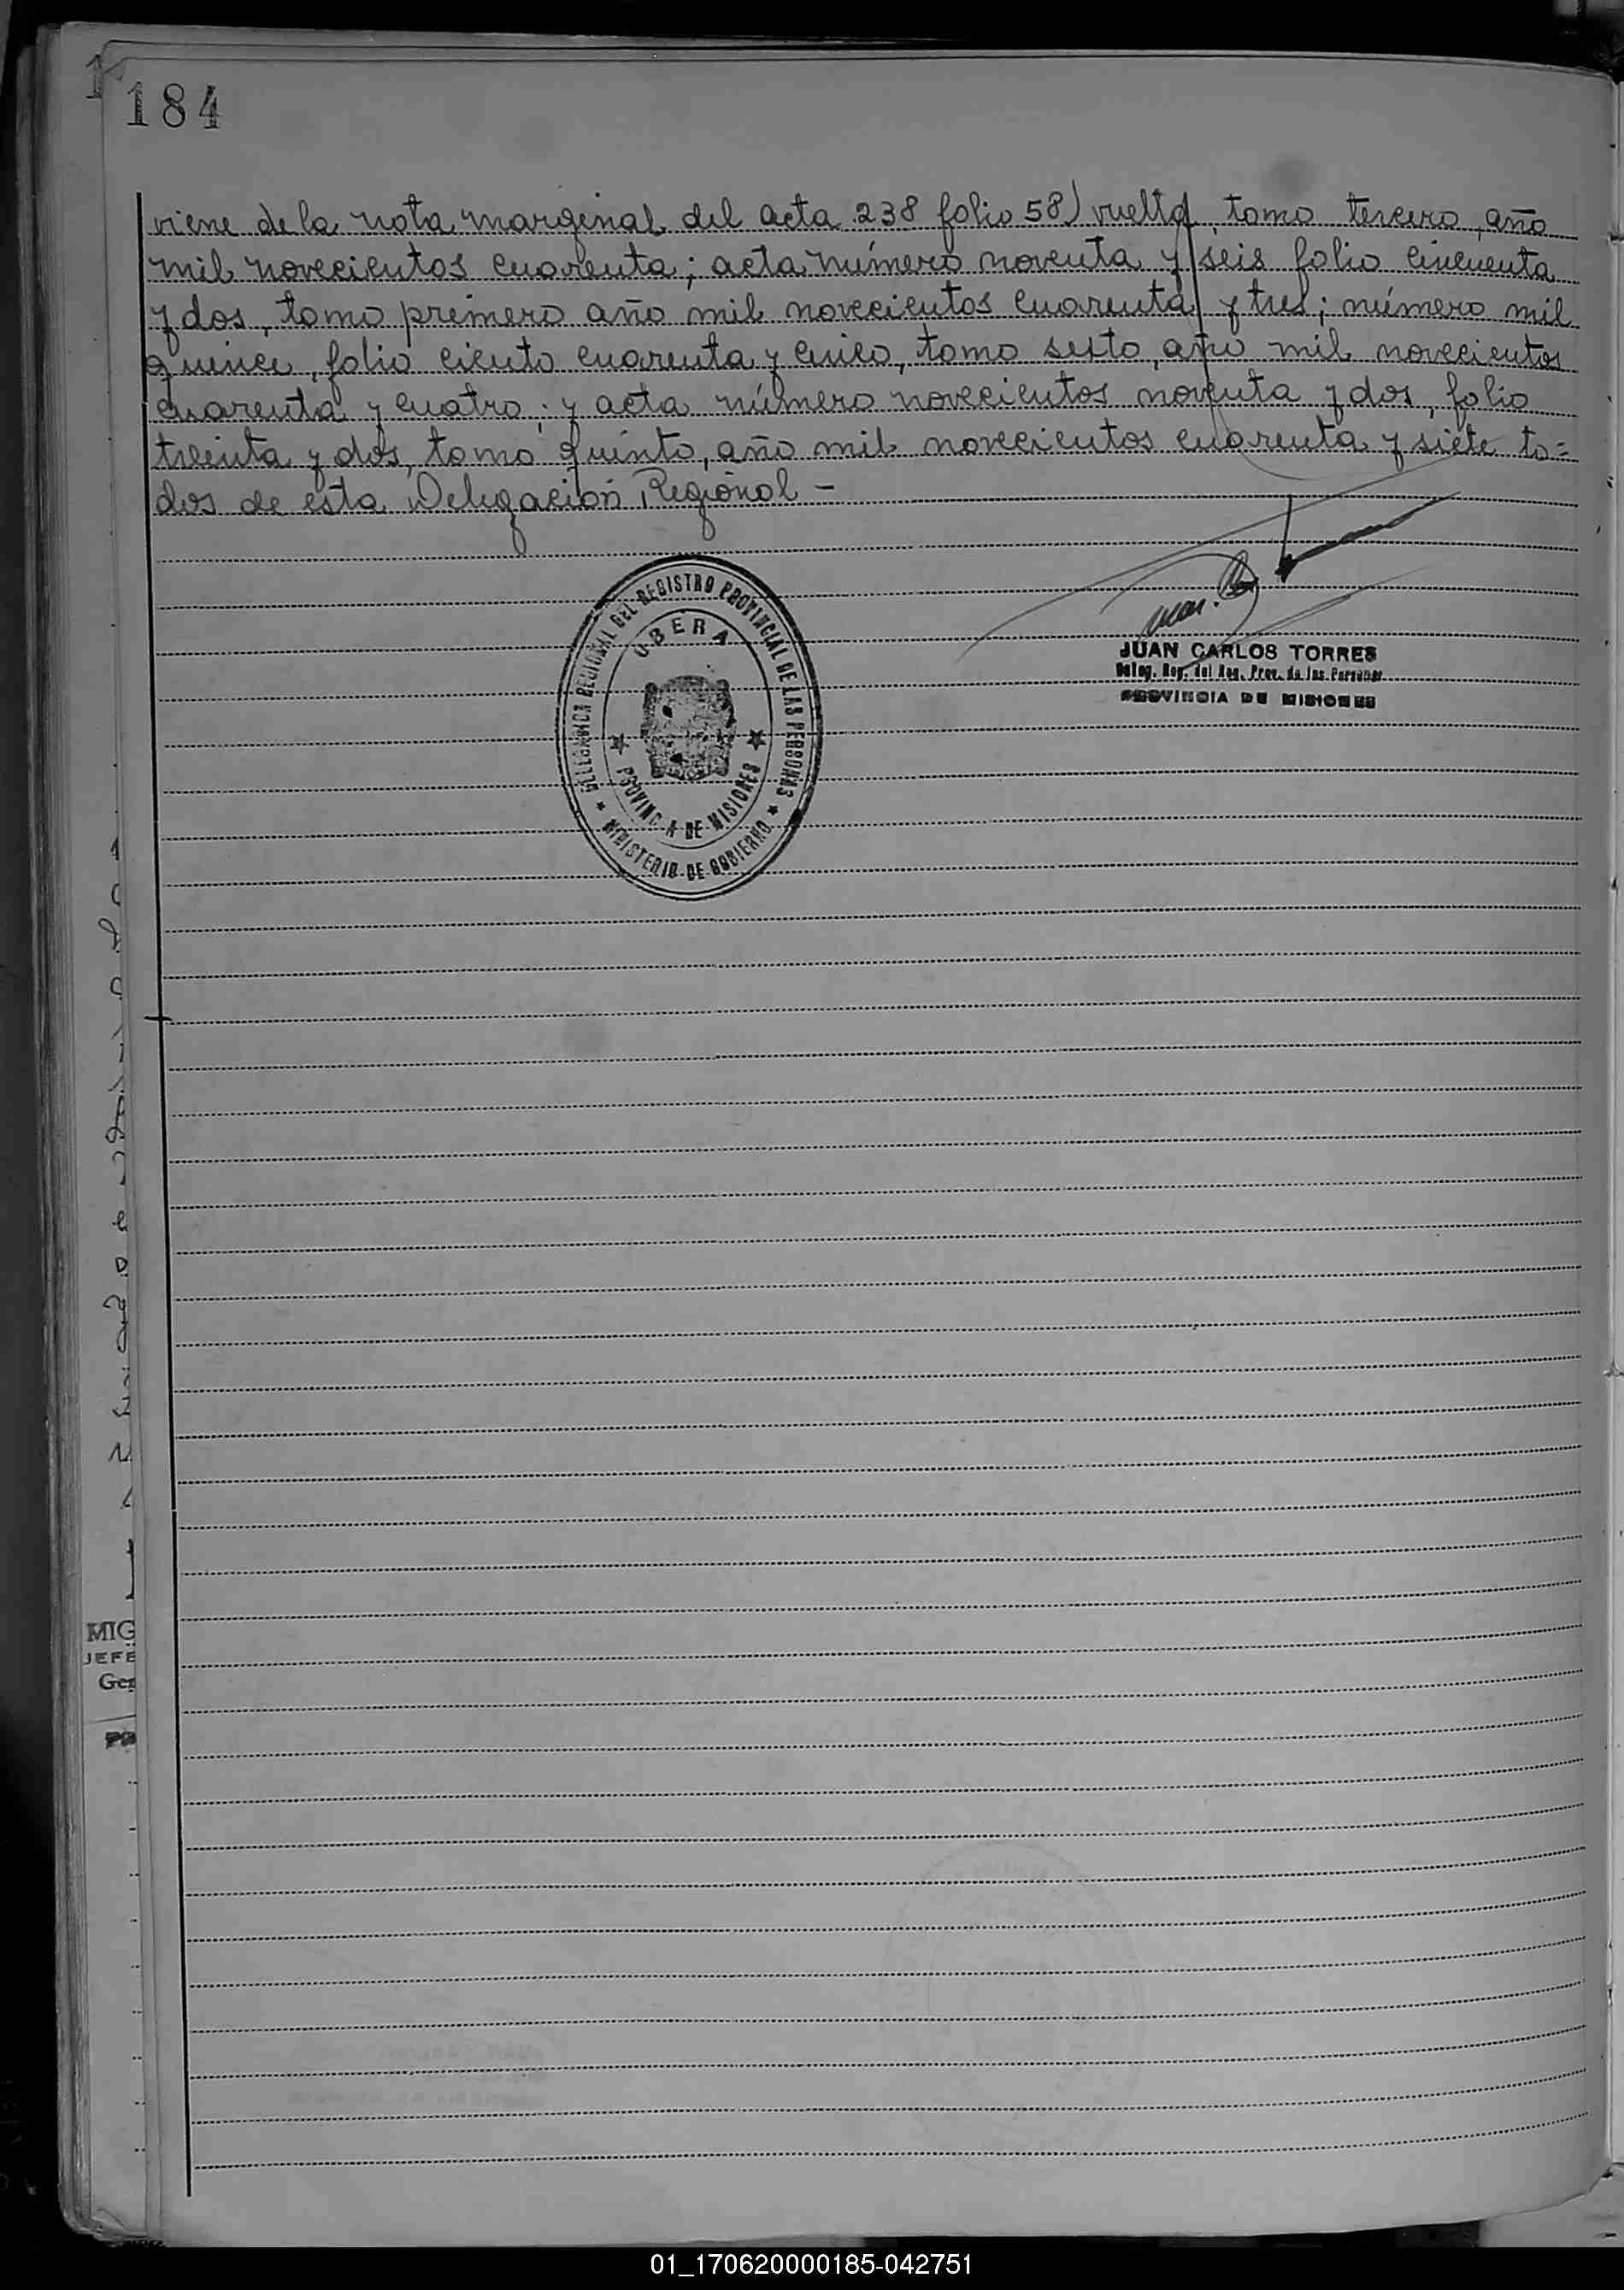 184
viene de la nota marginal del acta 238 folio 58) vuelta, tomo tercero, año
mil novecientos cuarenta; acta número noventa y seis folio cincuenta
y dos, tomo primero año mil novecientos cuarenta y tres; número mil
quince, folio ciento cuarenta y cinco, tomo sexto, año mil novecientos
cuarenta y cuatro; y acta número novecientos noventa y dos, folio
treinta y dos, tomo quinto, año mil novecientos cuarenta y siete to=
dos de esta Delegación Regional -
DELEGACION REGIONAL DEL REGISTRO PROVINCIAL DE LAS PERSONAS
OBERA
PROVINCIA DE MISIONES
MINISTERIO DE GOBIERNO
JUAN CARLOS TORRES
Deleg. Reg. del Reg. Prov. de las Personas
PROVINCIA DE MISIONES
MIG
JEFE
Ger
01_170620000185-042751